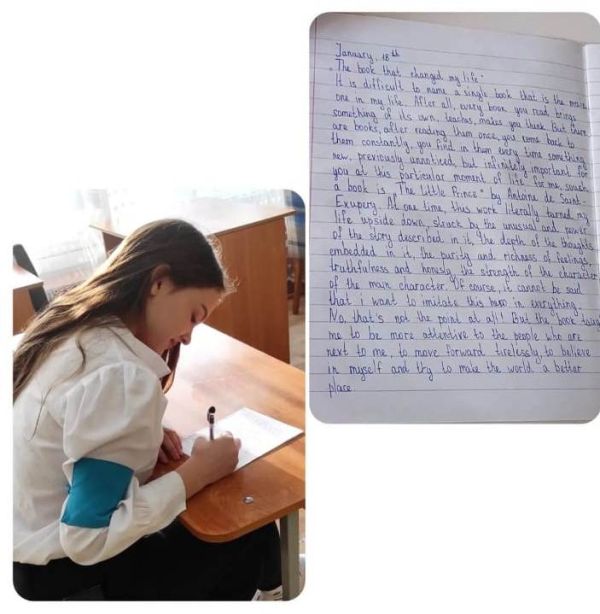 January, 18th
„The book that changed my life"
It is difficult to name a single book that is the main
one in my life. After all, every book you read brings
something of its own, teaches, makes you think. But there
are books, after reading them once, you come back to
them constantly, you find in them every time something
new, previously unnoticed, but infinitely important for
you at this particular moment of life. For me, such
a book is „The Little Prince" by Antoine de Saint-
Exupery. At one time, this work literally turned my
life upside down, struck by the unusual and power
of the story described in it, the depth of the thoughts
embedded in it, the purity and richness of feelings,
truthfulness and honesty, the strength of the character
of the main character. Of course, it cannot be said
that i want to imitate this hero in everything.
No, that's not the point at all! But the book taught
me to be more attentive to the people who are
next to me, to move forward tirelessly, to believe
in myself and try to make the world a better
place.